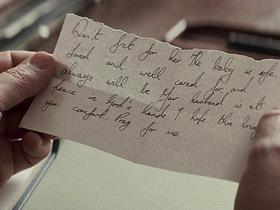 Don't fret for her the baby is safe
Loved and well cared for and
always will be Your husband is at
peace in God's hands I hope this brings
you comfort Pray for me.